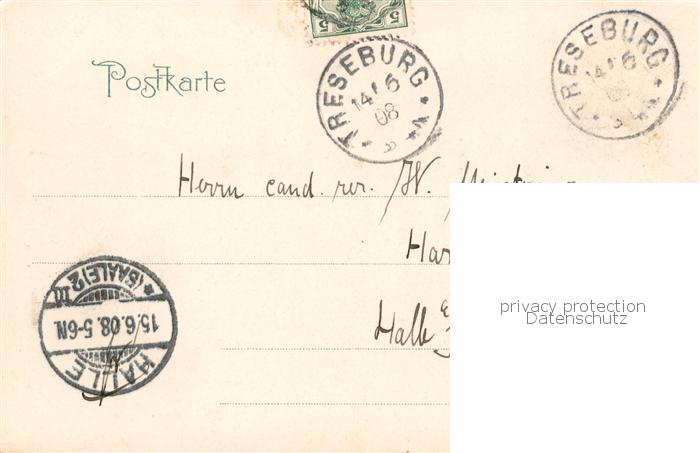 5 5
TRESEBURG
14/6
08
TRESEBURG
14/6
Postkarte
Herrn cand. rer. W.
Har
Halle
HALLE
15.6.08.5-6N.
*(SAALE)2
III
privacy protection
Datenschutz